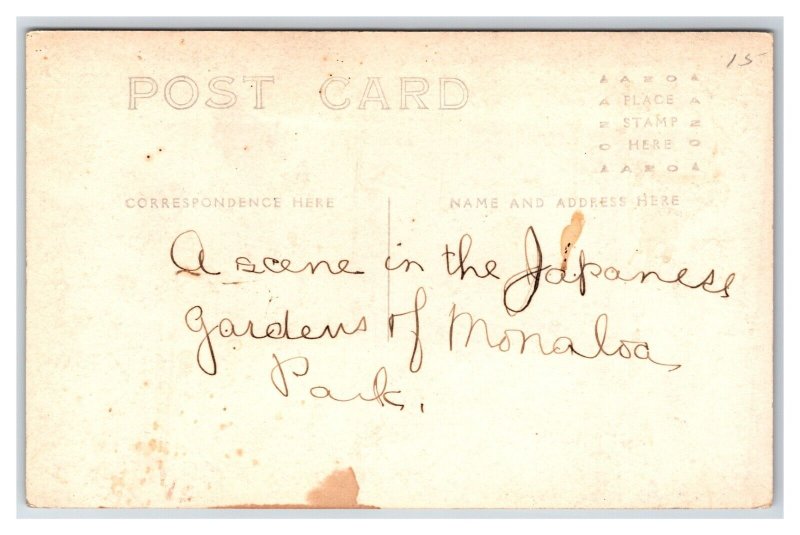 15
POST CARD
A A Z O A
A PLACE A
Z STAMP Z
O HERE O
A A Z O A
CORRESPONDENCE HERE
NAME AND ADDRESS HERE
A scene in the Japanese
gardens of Monaloa
Park.